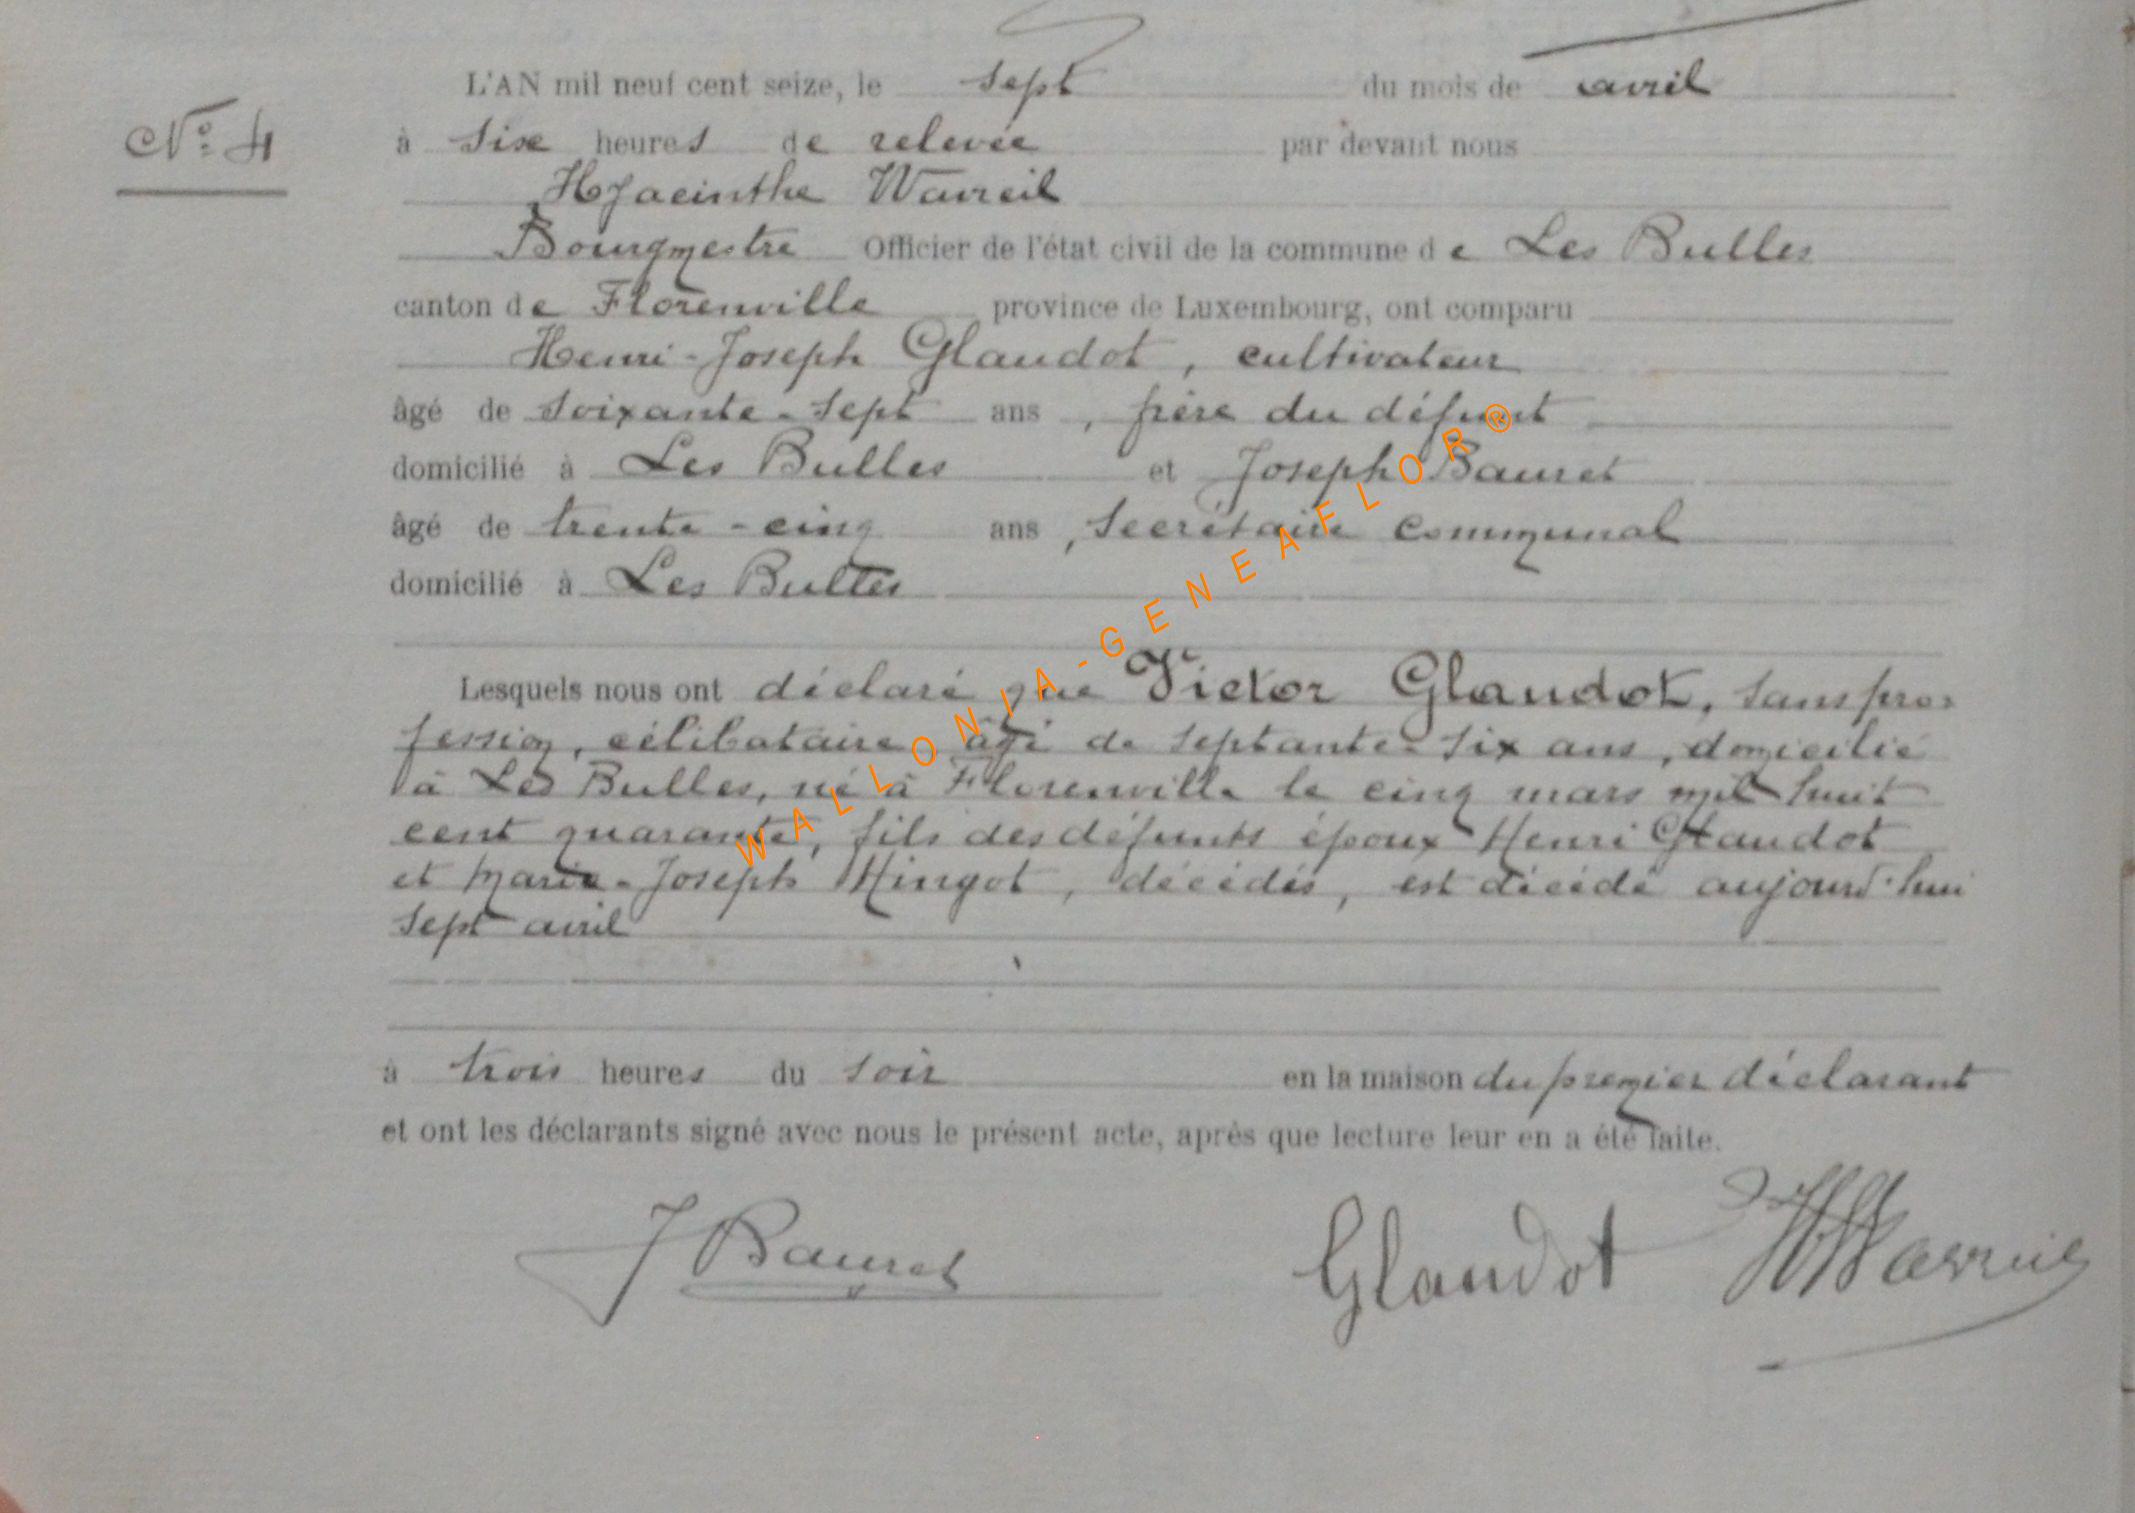 L'AN mil neuf cent seize, le sept du mois de avril
N° 4
à six heures de relevée par devant nous
Hyacinthe Wavreil
Bourgmestre Officier de l'état civil de la commune de Les Bulles
canton de Florenville province de Luxembourg, ont comparu
Henri-Joseph Glaudot, cultivateur
âgé de soixante-sept ans, frère du défunt
domicilié à Les Bulles et Joseph Bauret
âgé de trente-cinq ans, secrétaire communal
domicilié à Les Bulles
Lesquels nous ont déclaré que Victor Glaudot, sans pro-
fession, célibataire, âgé de septante-six ans, domicilié
à Les Bulles, né à Florenville le cinq mars mil huit
cent quarante, fils des défunts époux Henri Glaudot
et Marie-Joseph Hingot, décédés, est décédé aujourd'hui
sept avril
à trois heures du soir en la maison du premier déclarant
et ont les déclarants signé avec nous le présent acte, après que lecture leur en a été faite.
J Bauret Glaudot H Wavreil
WALLONIA-GENEAFLOR®